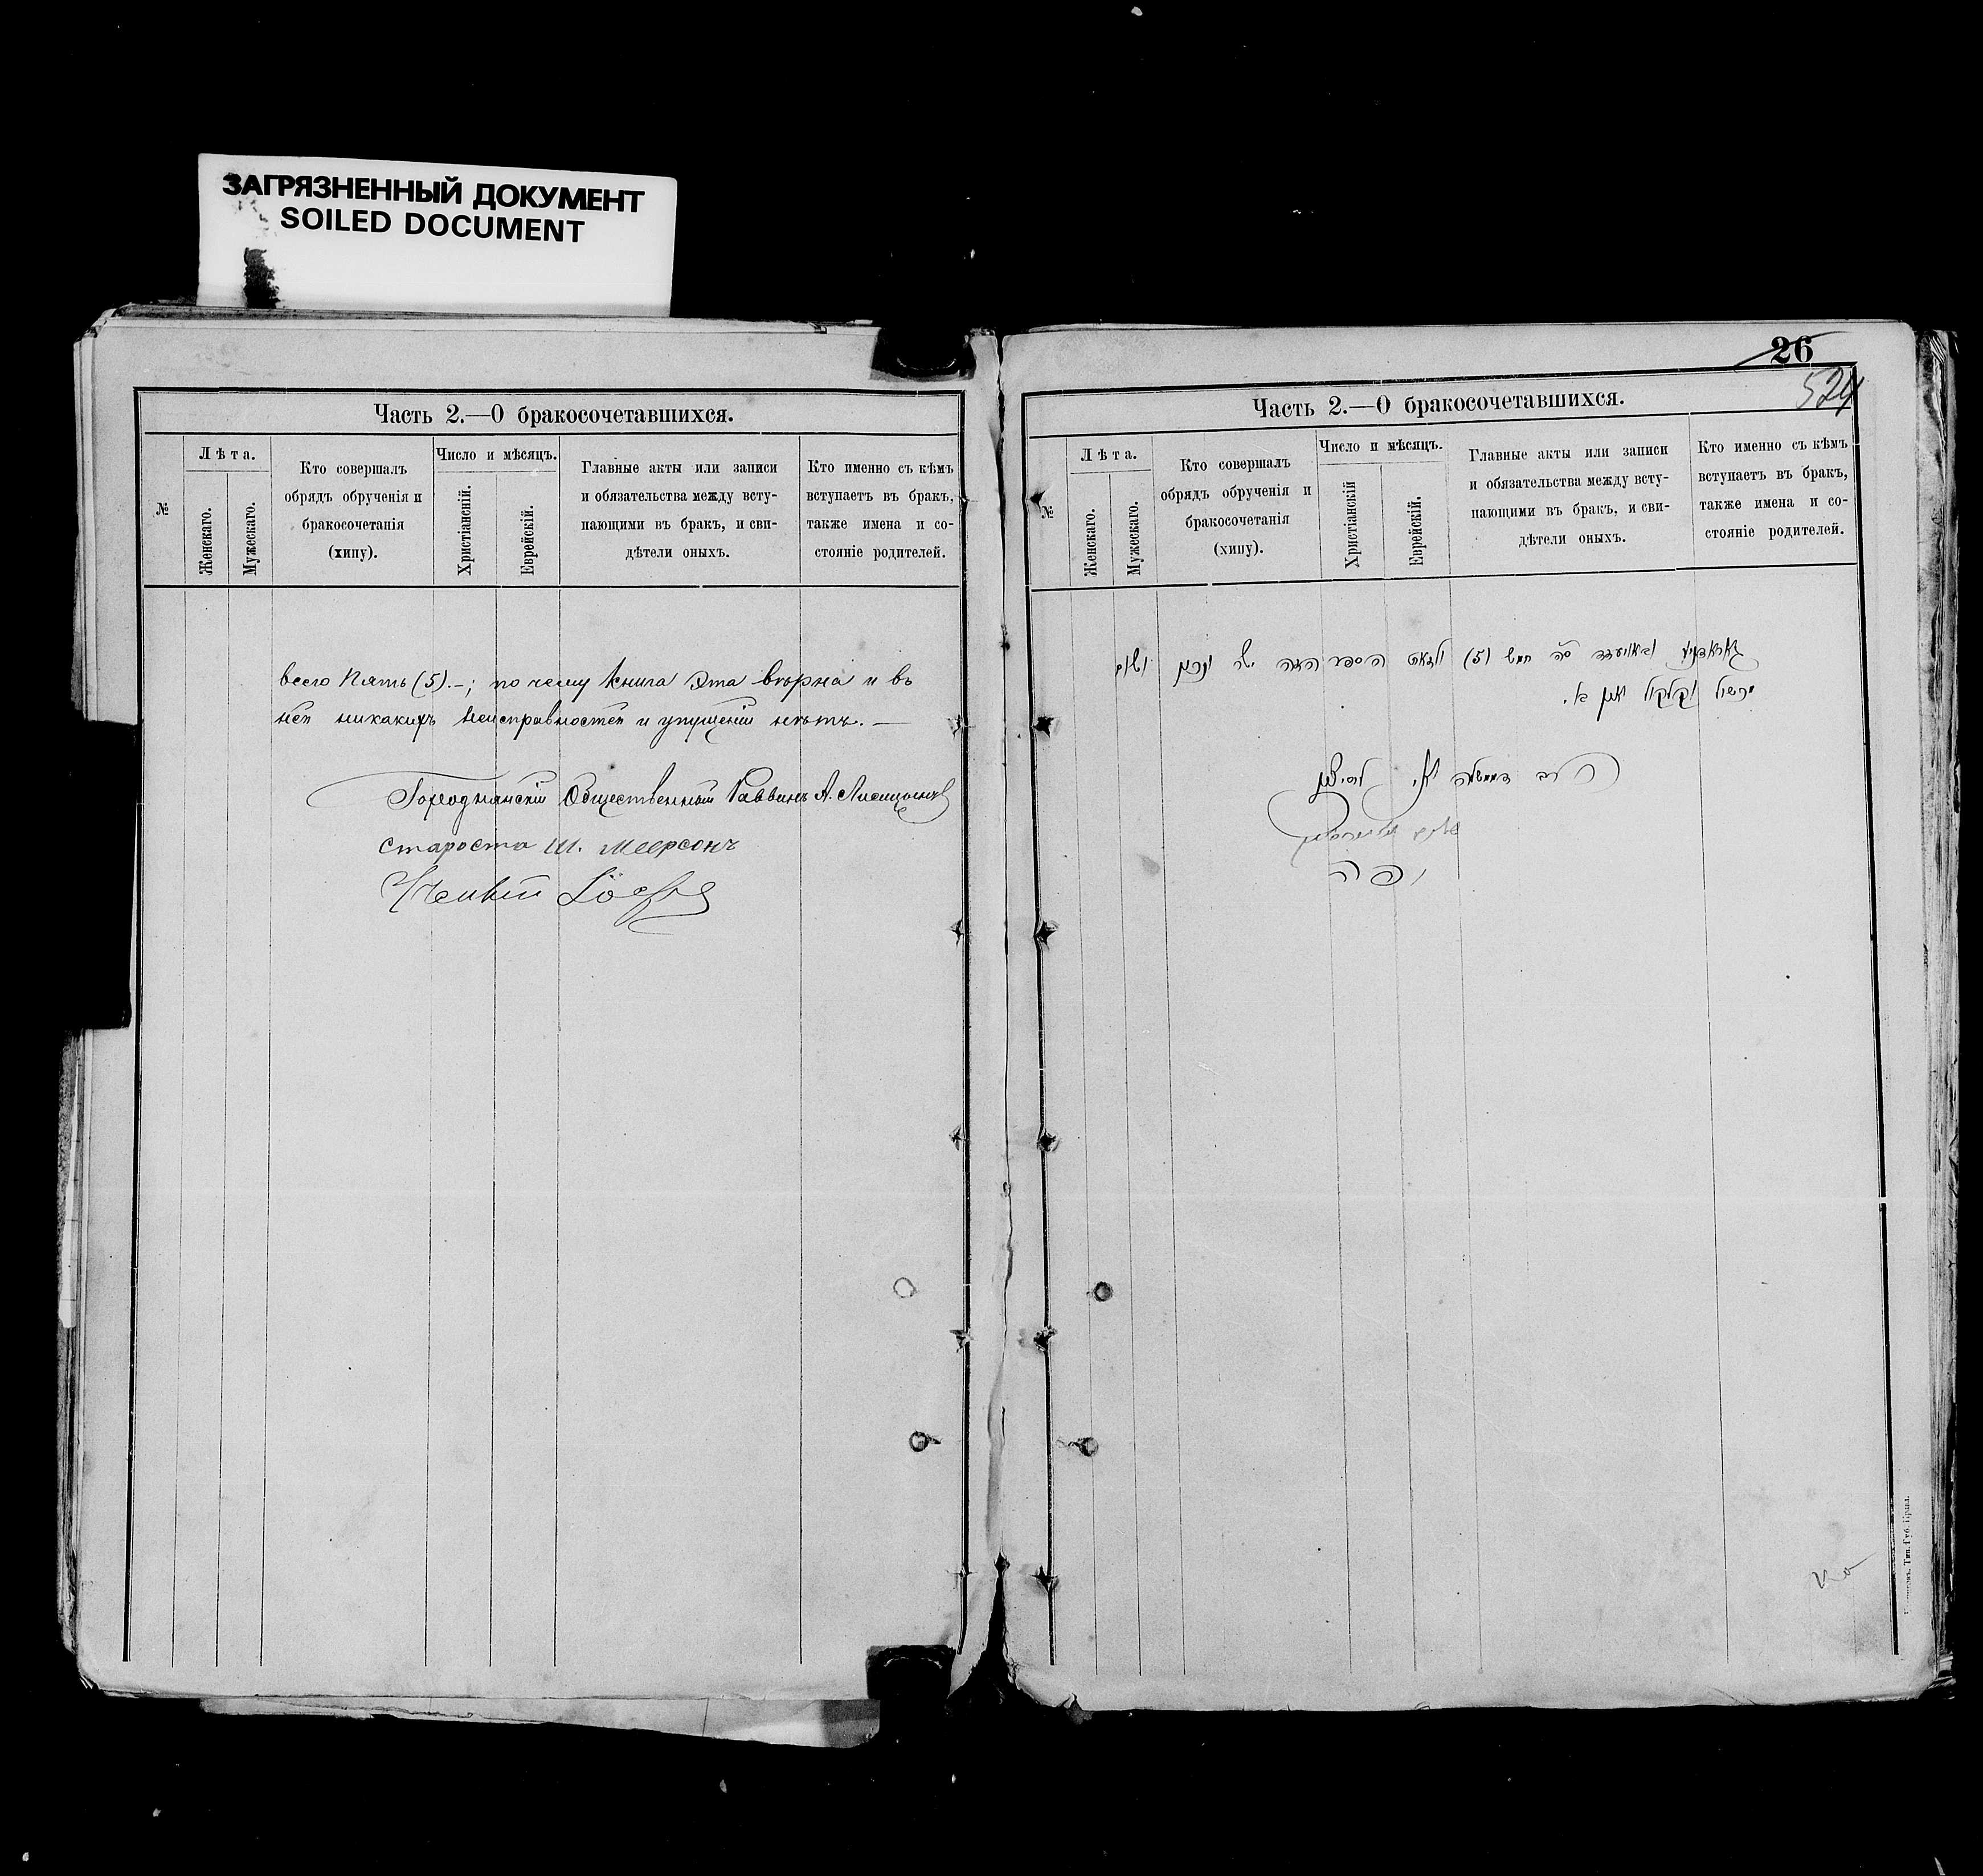 ЗАГРЯЗНЕННЫЙ ДОКУМЕНТ
SOILED DOCUMENT
Часть 2.—О бракосочетавшихся.
№
Лѣта.
Женскаго.
Мужескаго.
Кто совершалъ
обрядъ обрученія и
бракосочетанія
(хипу).
Число и мѣсяцъ.
Христіанскій.
Еврейскій.
Главные акты или записи
и обязательства между всту-
пающими въ бракъ, и сви-
дѣтели оныхъ.
Кто именно съ кѣмъ
вступаетъ въ бракъ,
также имена и со-
стояніе родителей.
всего Пять (5).—; по чему Книга Эта вѣрна и въ
ней никакихъ неисправностей и упущеній нѣтъ.—
Городнянскій Общественный Раввинъ А. Лисицынъ
староста Ш. Меерсонъ
26
524
Часть 2.—О бракосочетавшихся.
№
Лѣта.
Женскаго.
Мужескаго.
Кто совершалъ
обрядъ обрученія и
бракосочетанія
(хипу).
Число и мѣсяцъ.
Христіанскій
Еврейскій.
Главные акты или записи
и обязательства между всту-
пающими въ бракъ, и сви-
дѣтели оныхъ.
Кто именно съ кѣмъ
вступаетъ въ бракъ,
также имена и со-
стояніе родителей.
חמש (5) הספר הזה ישר ונכון ושום
קלקול אין בו.
הרב
Тип. Губ. Правл.